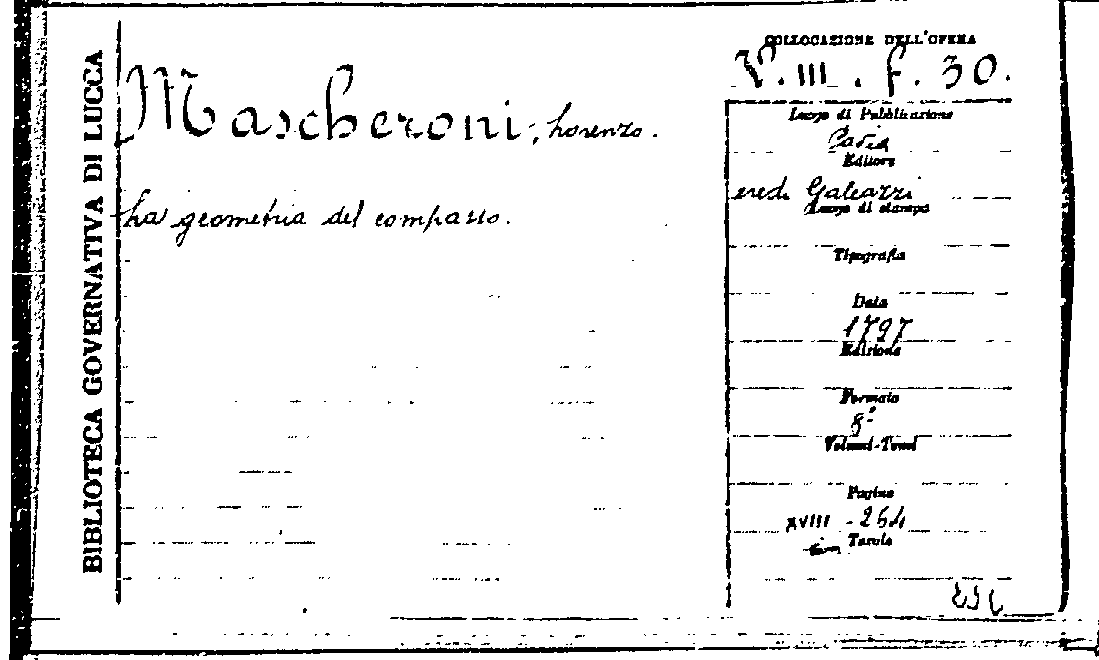 BIBLIOTECA GOVERNATIVA DI LUCCA
Mascheroni, Lorenzo.
La geometria del compasso.
COLLOCAZIONE DELL'OPERA
V. III. f. 30.
Luogo di Pubblicazione
Pavia
Editore
ered. Galeazzi
Luogo di stampa
Tipografia
Data
1797
Edizione
Formato
8°
Volumi-Tomi
Pagine
XVIII - 264
Tavole